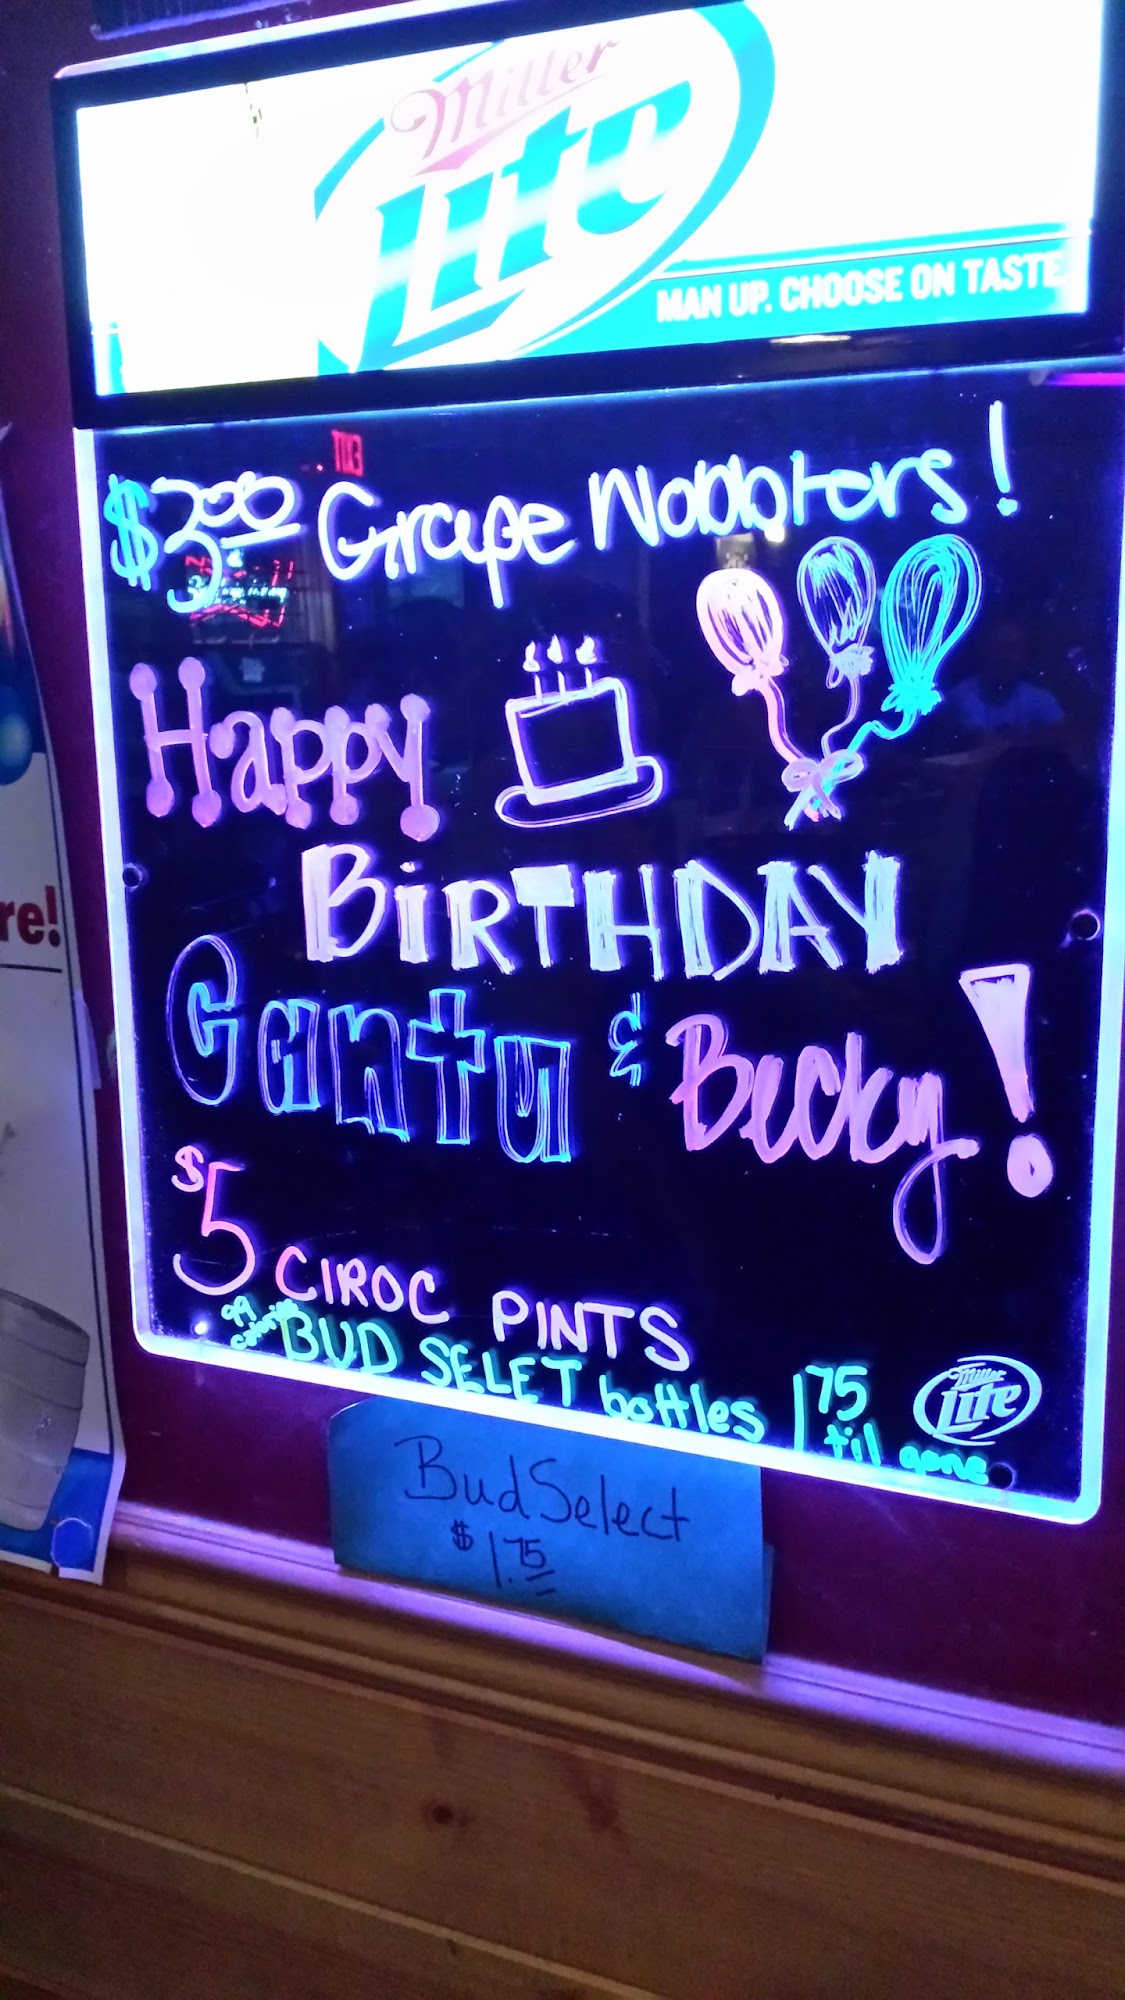 Miller
Lite
MAN UP. CHOOSE ON TASTE
$3.00 Grape Nobbters!
Happy
BiRTHDAY
Cantu & Becky!
$5 CIROC PINTS
99
BUD SELET bottles 1 75
'til gone
Miller
Lite
Bud Select
$1.75
re!